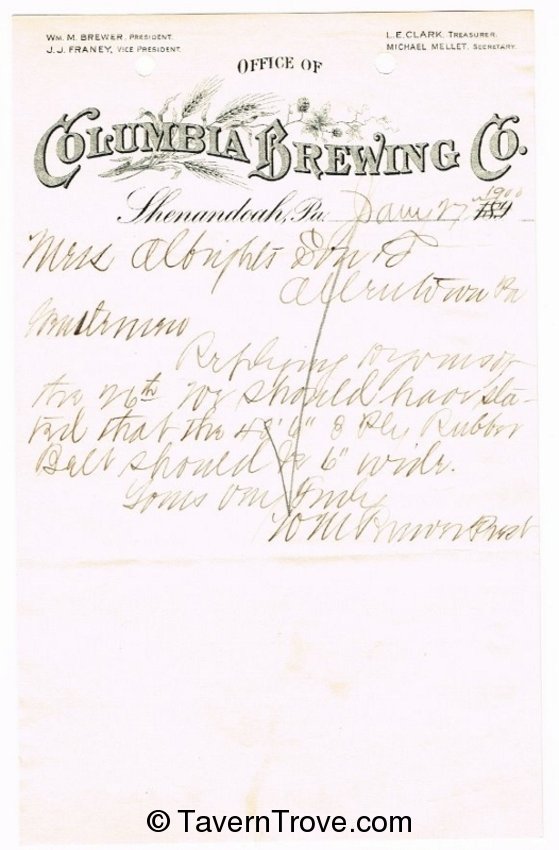 WM. M. BREWER, PRESIDENT.
J. J. FRANEY, VICE PRESIDENT.
L. E. CLARK, TREASURER.
MICHAEL MELLET, SECRETARY.
OFFICE OF
COLUMBIA BREWING CO.
Shenandoah, Pa. Jany 27 1900 189
Mess Albrights Son &
Allentown Pa
Gentlemen
Replying to yours of
the 26th We should have sta-
ted that the 48' 6" 8 Ply Rubber
Belt should be 6" wide.
Yours Very Truly
W M Brewer Prest
© TavernTrove.com